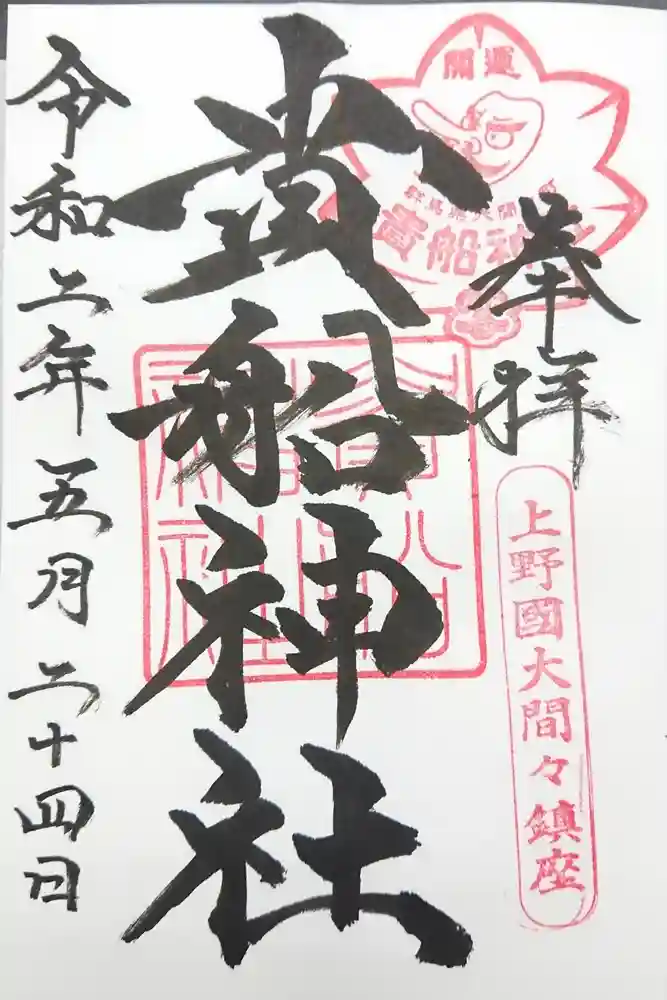 開運
群馬県大間々
貴船神社
奉拝
上野國大間々鎮座
貴船神社
令和二年五月二十四日